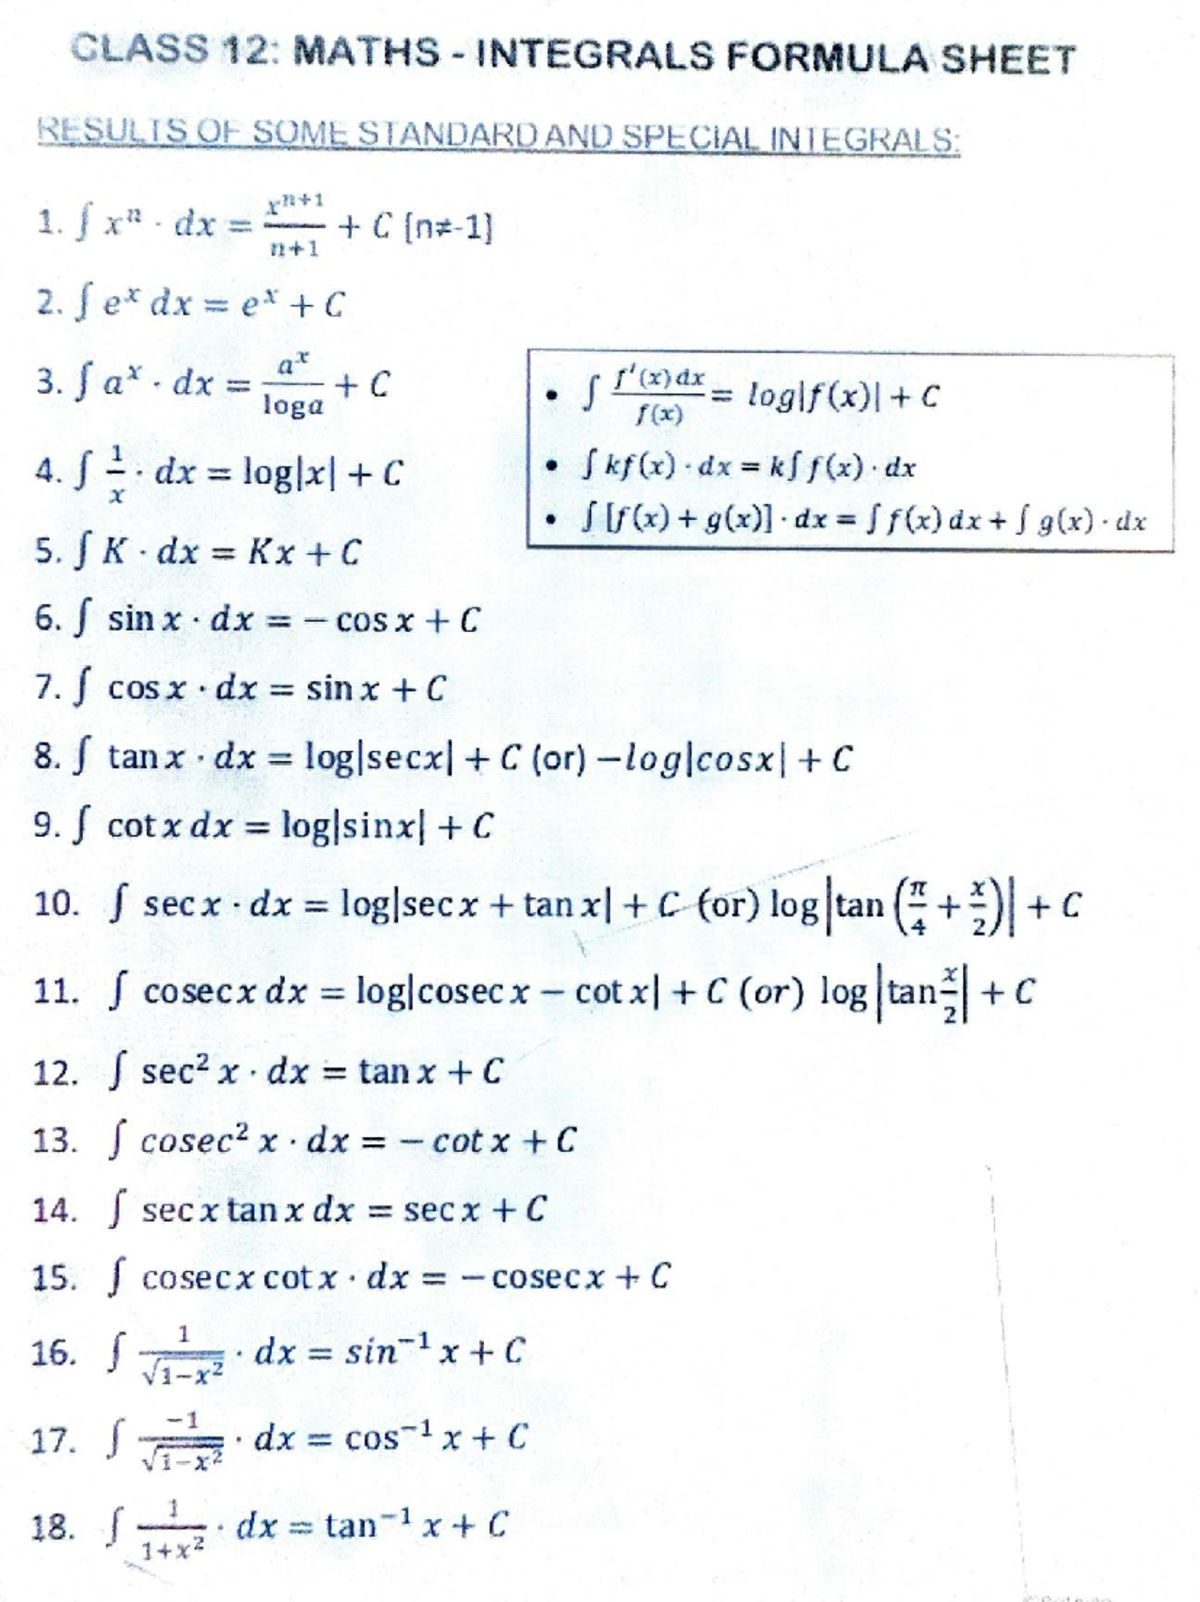 CLASS 12: MATHS - INTEGRALS FORMULA SHEET
RESULTS OF SOME STANDARD AND SPECIAL INTEGRALS:
1. ∫ xⁿ · dx = xⁿ⁺¹/n+1 + C [n≠-1]
2. ∫ eˣ dx = eˣ + C
3. ∫ aˣ · dx = aˣ/loga + C
• ∫ f′(x)dx/f(x) = log|f(x)| + C
• ∫ kf(x) · dx = k∫ f(x) · dx
• ∫ [f(x) + g(x)] · dx = ∫ f(x) dx + ∫ g(x) · dx
4. ∫ 1/x · dx = log|x| + C
5. ∫ K · dx = Kx + C
6. ∫ sin x · dx = − cos x + C
7. ∫ cos x · dx = sin x + C
8. ∫ tanx · dx = log|secx| + C (or) −log|cosx| + C
9. ∫ cot x dx = log|sinx| + C
10. ∫ sec x · dx = log|sec x + tan x| + C (or) log|tan (π/4 + x/2)| + C
11. ∫ cosecx dx = log|cosec x − cot x| + C (or) log|tan x/2| + C
12. ∫ sec² x · dx = tan x + C
13. ∫ cosec² x · dx = − cot x + C
14. ∫ sec x tan x dx = sec x + C
15. ∫ cosecx cot x · dx = − cosecx + C
16. ∫ 1/√1−x² · dx = sin⁻¹ x + C
17. ∫ −1/√1−x² · dx = cos⁻¹ x + C
18. ∫ 1/1+x² · dx = tan⁻¹ x + C